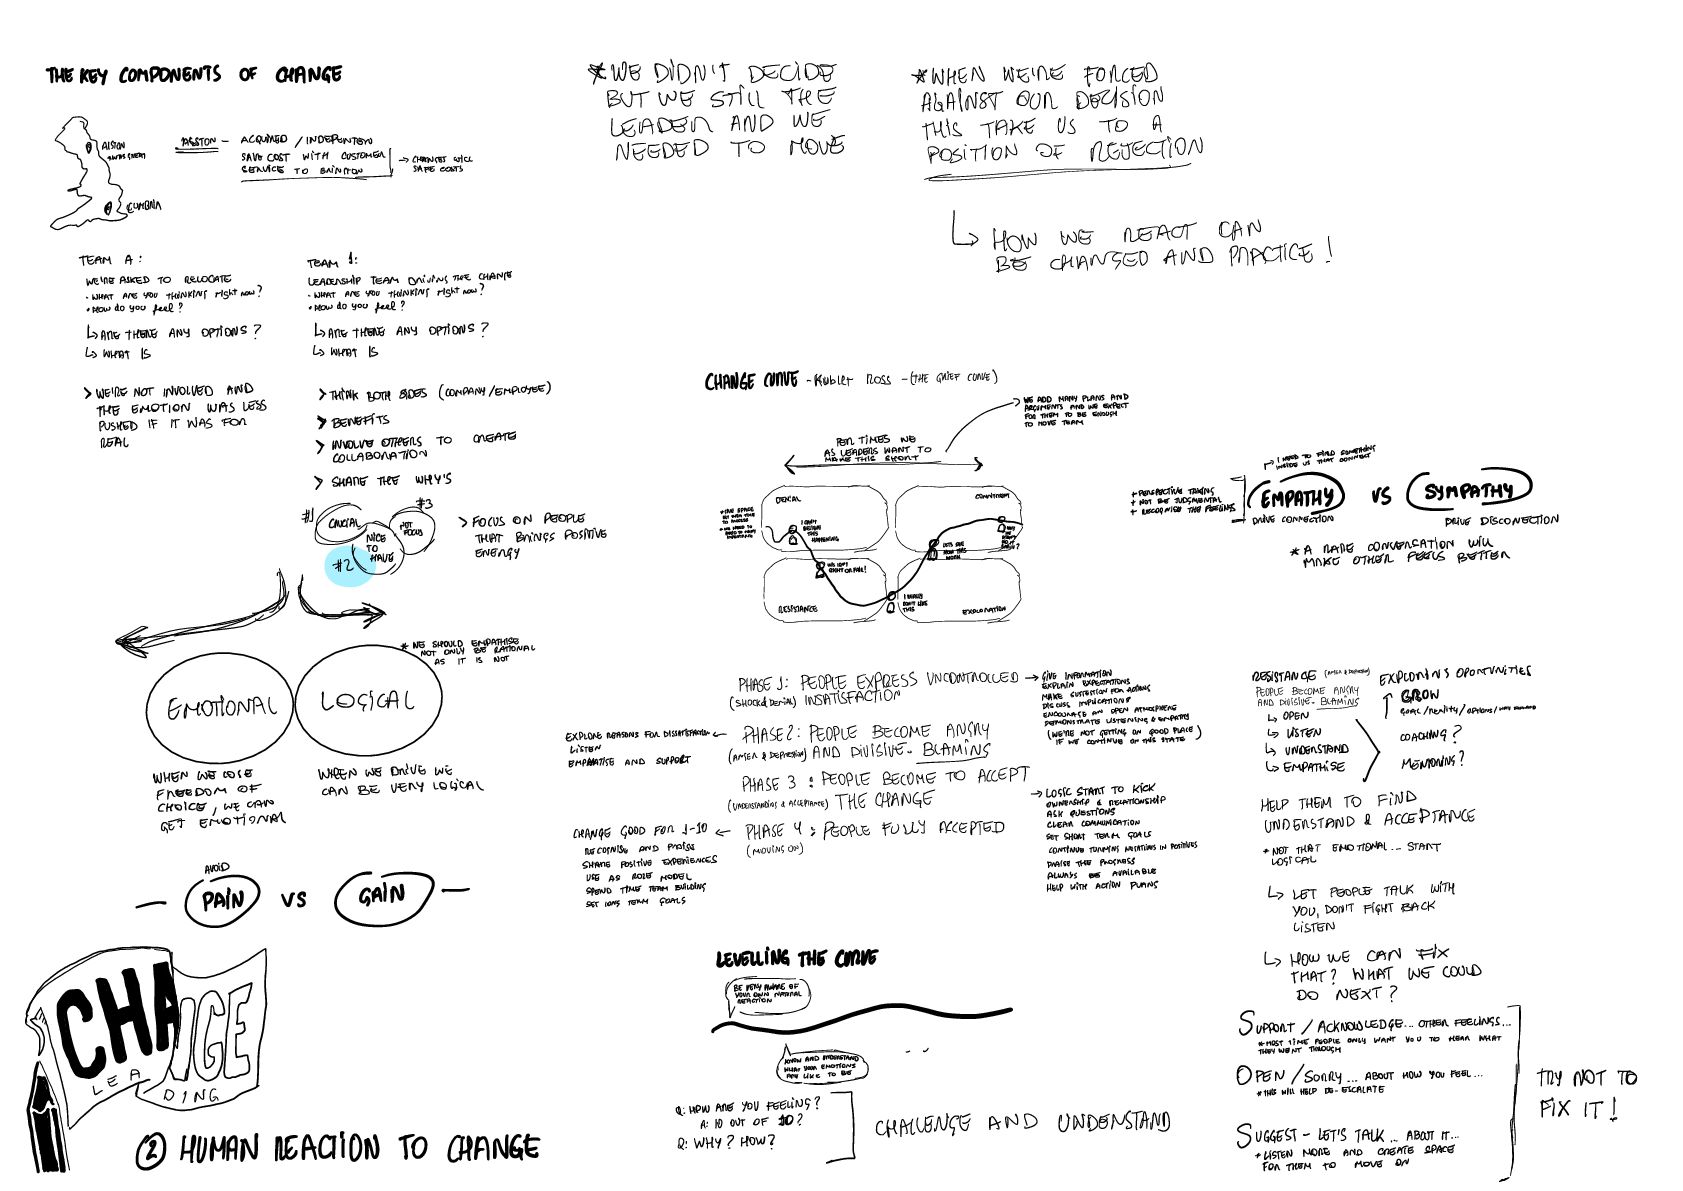 THE KEY COMPONENTS OF CHANGE
ALSTON
CUMBRIA
ALSTON – ACQUIRED / INDEPENTEN
SAVE COST WITH CUSTOMER
SERVICE TO
→ CHANGES WILL
SAFE COSTS
*WE DIDN'T DECIDE
BUT WE STILL THE
LEADER AND WE
NEEDED TO MOVE
*WHEN WE'RE FORCED
AGAINST OUR DECISION
THIS TAKE US TO A
POSITION OF REJECTION
↳ HOW WE REACT CAN
BE CHANGED AND PRACTICE!
TEAM A:
WE'RE ASKED TO RELOCATE
• WHAT ARE YOU THINKING right now?
• How do you feel?
↳ ARE THERE ANY OPTIONS?
↳ WHAT IS
> WE'RE NOT INVOLVED AND
THE EMOTION WAS LESS
PUSHED IF IT WAS FOR
REAL
TEAM 1:
LEADERSHIP TEAM DRIVING THE CHANGE
• WHAT ARE YOU THINKING right now?
• How do you feel?
↳ ARE THERE ANY OPTIONS?
↳ WHAT IS
> THINK BOTH SIDES (COMPANY/EMPLOYEE)
> BENEFITS
> INVOLVE OTHERS TO CREATE
COLLABORATION
> SHARE THE WHY'S
#1
CRUCIAL
#3
NOT
FOCUS
NICE
TO
HAVE
#2
> FOCUS ON PEOPLE
THAT BRINGS POSITIVE
ENERGY
* WE SHOULD EMPATHISE
NOT ONLY BE RATIONAL
AS IT IS NOT
EMOTIONAL
LOGICAL
WHEN WE LOSE
FREEDOM OF
CHOICE, WE CAN
GET EMOTIONAL
WHEN WE DRIVE WE
CAN BE VERY LOGICAL
AVOID
— PAIN VS GAIN —
CHANGE
LEADING
② HUMAN REACTION TO CHANGE
CHANGE CURVE - Kübler Ross - (THE GRIEF CURVE)
> WE ADD MANY PLANS AND
ARGUMENTS AND WE EXPECT
FOR THEM TO BE ENOUGH
TO MOVE TEAM
PER TIMES WE
AS LEADERS WANT TO
MAKE THIS SHORT
DENIAL
COMMITMENT
I CAN'T
BELIEVE
THIS
HAPPENING
LETS SEE
HOW THIS
WORK
I REALLY
DON'T LIKE
THIS
RESISTANCE
EXPLORATION
PHASE 1: PEOPLE EXPRESS UNCONTROLLED
(SHOCK & DENIAL) INSATISFACTION
→ GIVE INFORMATION
EXPLAIN EXPECTATIONS
MAKE SUGESTION FOR ACTIONS
DISCUSS IMPLICATIONS
ENCOURAGE AN OPEN ATMOSPHERE
DEMONSTRATE LISTENING & EMPATHY
(WE'RE NOT GETTING ON GOOD PLACE)
IF WE CONTINUE ON THIS STATE
PHASE 2: PEOPLE BECOME ANGRY
(ANGER & DEPRESSION) AND DIVISIVE- BLAMING
EXPLORE REASONS FOR DISSATISFACTION
LISTEN
EMPHATISE AND SUPPORT
PHASE 3: PEOPLE BECOME TO ACCEPT
(UNDERSTANDING & ACCEPTANCE) THE CHANGE
→ LOGIC START TO KICK
OWNERSHIP & RELATIONSHIP
ASK QUESTIONS
CLEAR COMMUNICATION
SET SHORT TERM GOALS
CONTINUE TURNING NEGATIVES IN POSITIVES
PRAISE THE PROGRESS
ALWAYS BE AVAILABLE
HELP WITH ACTION PLANS
PHASE 4: PEOPLE FULLY ACCEPTED
(MOVING ON)
CHANGE GOOD FOR 1-10 ←
RECOGNISE AND PRAISE
SHARE POSITIVE EXPERIENCES
USE AS ROLE MODEL
SPEND TIME TEAM BUILDING
SET LONG TERM GOALS
LEVELLING THE CURVE
BE VERY AWARE OF
YOUR OWN NATURAL
REACTION
KNOW AND UNDERSTAND
WHAT YOUR EMOTIONS
ARE LIKE TO BE
Q: HOW ARE YOU FEELING?
A: 10 OUT OF 10?
Q: WHY? HOW?
CHALLENGE AND UNDERSTAND
→ I NEED TO FIND SOMETHING
INSIDE US THAT CONNECT
+ PERSPECTIVE TAKING
+ NOT BE JUDGMENTAL
+ RECOGNISE THE FEELINGS
EMPATHY VS SYMPATHY
DRIVE CONNECTION
DRIVE DISCONECTION
* A RARE CONVERSATION WILL
MAKE OTHER FEELS BETTER
RESISTANCE (ANGER & DEPRESSION)
PEOPLE BECOME ANGRY
AND DIVISIVE. BLAMING
↳ OPEN
↳ LISTEN
↳ UNDERSTAND
↳ EMPATHISE
EXPLORING OPORTUNITIES
GROW
GOAL/REALITY/OPTIONS/WAY FORWARD
COACHING?
MENTORING?
HELP THEM TO FIND
UNDERSTAND & ACCEPTANCE
* NOT THAT EMOTIONAL... START
LOGICAL
↳ LET PEOPLE TALK WITH
YOU, DON'T FIGHT BACK
LISTEN
↳ HOW WE CAN FIX
THAT? WHAT WE COULD
DO NEXT?
SUPPORT / ACKNOWLEDGE... OTHER FEELINGS...
* MOST TIME PEOPLE ONLY WANT YOU TO HEAR WHAT
THEY WENT THROUGH
OPEN / SORRY... ABOUT HOW YOU FEEL...
* THIS WILL HELP DE-ESCALATE
SUGGEST - LET'S TALK... ABOUT IT...
+ LISTEN MORE AND CREATE SPACE
FOR THEM TO MOVE ON
TRY NOT TO
FIX IT!